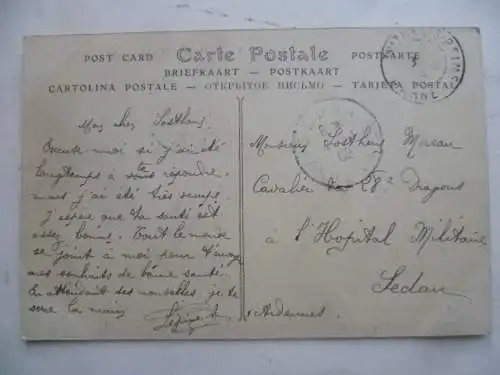 POST CARD — Carte Postale — POSTKARTE
BRIEFKAART — POSTKAART
CARTOLINA POSTALE — ОТКРЫТОЕ ПИСЬМО — TARJETA POSTAL
Mon cher Sosthène.
Excuse moi si j'ai été
longtemps à te répondre,
mais j'ai été très occupé.
J'espère que ta santé est
assez bonne. Tout le monde
se joint à moi pour t'envoyer
mes souhaits de bonne santé.
En attendant ses nouvelles je te
serre la main
Monsieur Sosthène Moreau
Cavalier au 28e Dragons
à l'Hopital Militaire
Sedan
Ardennes.